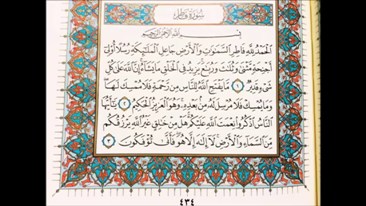 سُورَةُ فَاطِرٍ
بِسْمِ اللَّهِ الرَّحْمَٰنِ الرَّحِيمِ
الْحَمْدُ لِلَّهِ فَاطِرِ السَّمَٰوَٰتِ وَالْأَرْضِ جَاعِلِ الْمَلَٰٓئِكَةِ رُسُلًا أُو۟لِىٓ
أَجْنِحَةٍ مَّثْنَىٰ وَثُلَٰثَ وَرُبَٰعَ يَزِيدُ فِى الْخَلْقِ مَا يَشَآءُ إِنَّ اللَّهَ عَلَىٰ كُلِّ
شَىْءٍ قَدِيرٌ ١ مَّا يَفْتَحِ اللَّهُ لِلنَّاسِ مِن رَّحْمَةٍ فَلَا مُمْسِكَ لَهَا
وَمَا يُمْسِكْ فَلَا مُرْسِلَ لَهُۥ مِنۢ بَعْدِهِۦ وَهُوَ الْعَزِيزُ الْحَكِيمُ ٢ يَٰٓأَيُّهَا
النَّاسُ اذْكُرُوا۟ نِعْمَتَ اللَّهِ عَلَيْكُمْ هَلْ مِنْ خَٰلِقٍ غَيْرُ اللَّهِ يَرْزُقُكُم
مِّنَ السَّمَآءِ وَالْأَرْضِ لَآ إِلَٰهَ إِلَّا هُوَ فَأَنَّىٰ تُؤْفَكُونَ ٣
٤٣٤